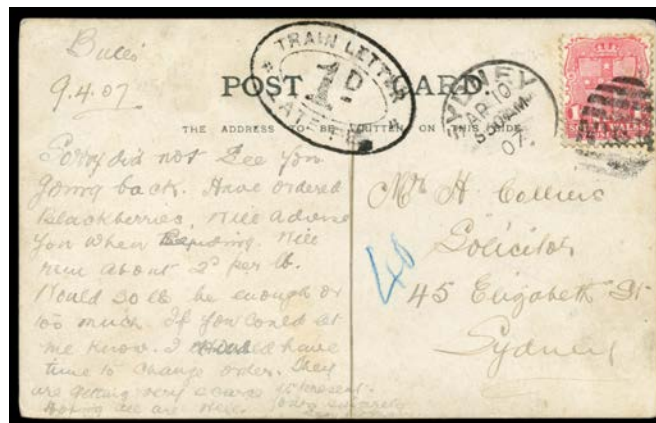 Bulli
9.4.07
POST CARD.
TRAIN LETTER
1D
LATE FEE
SYDNEY
AP 10
5 00 AM
07
THE ADDRESS TO BE WRITTEN ON THIS SIDE
Sorry did not see you
going back. Have ordered
Blackberries, will advise
you when sending. Will
run about 2d per lb.
Would 30 lb be enough or
too much. If you could let
me know. I would have
time to change order. They
are getting very scarce at present.
Hoping all are well. yours sincerely
Mr H. Colliers
Solicitor
45 Elizabeth St
Sydney
40